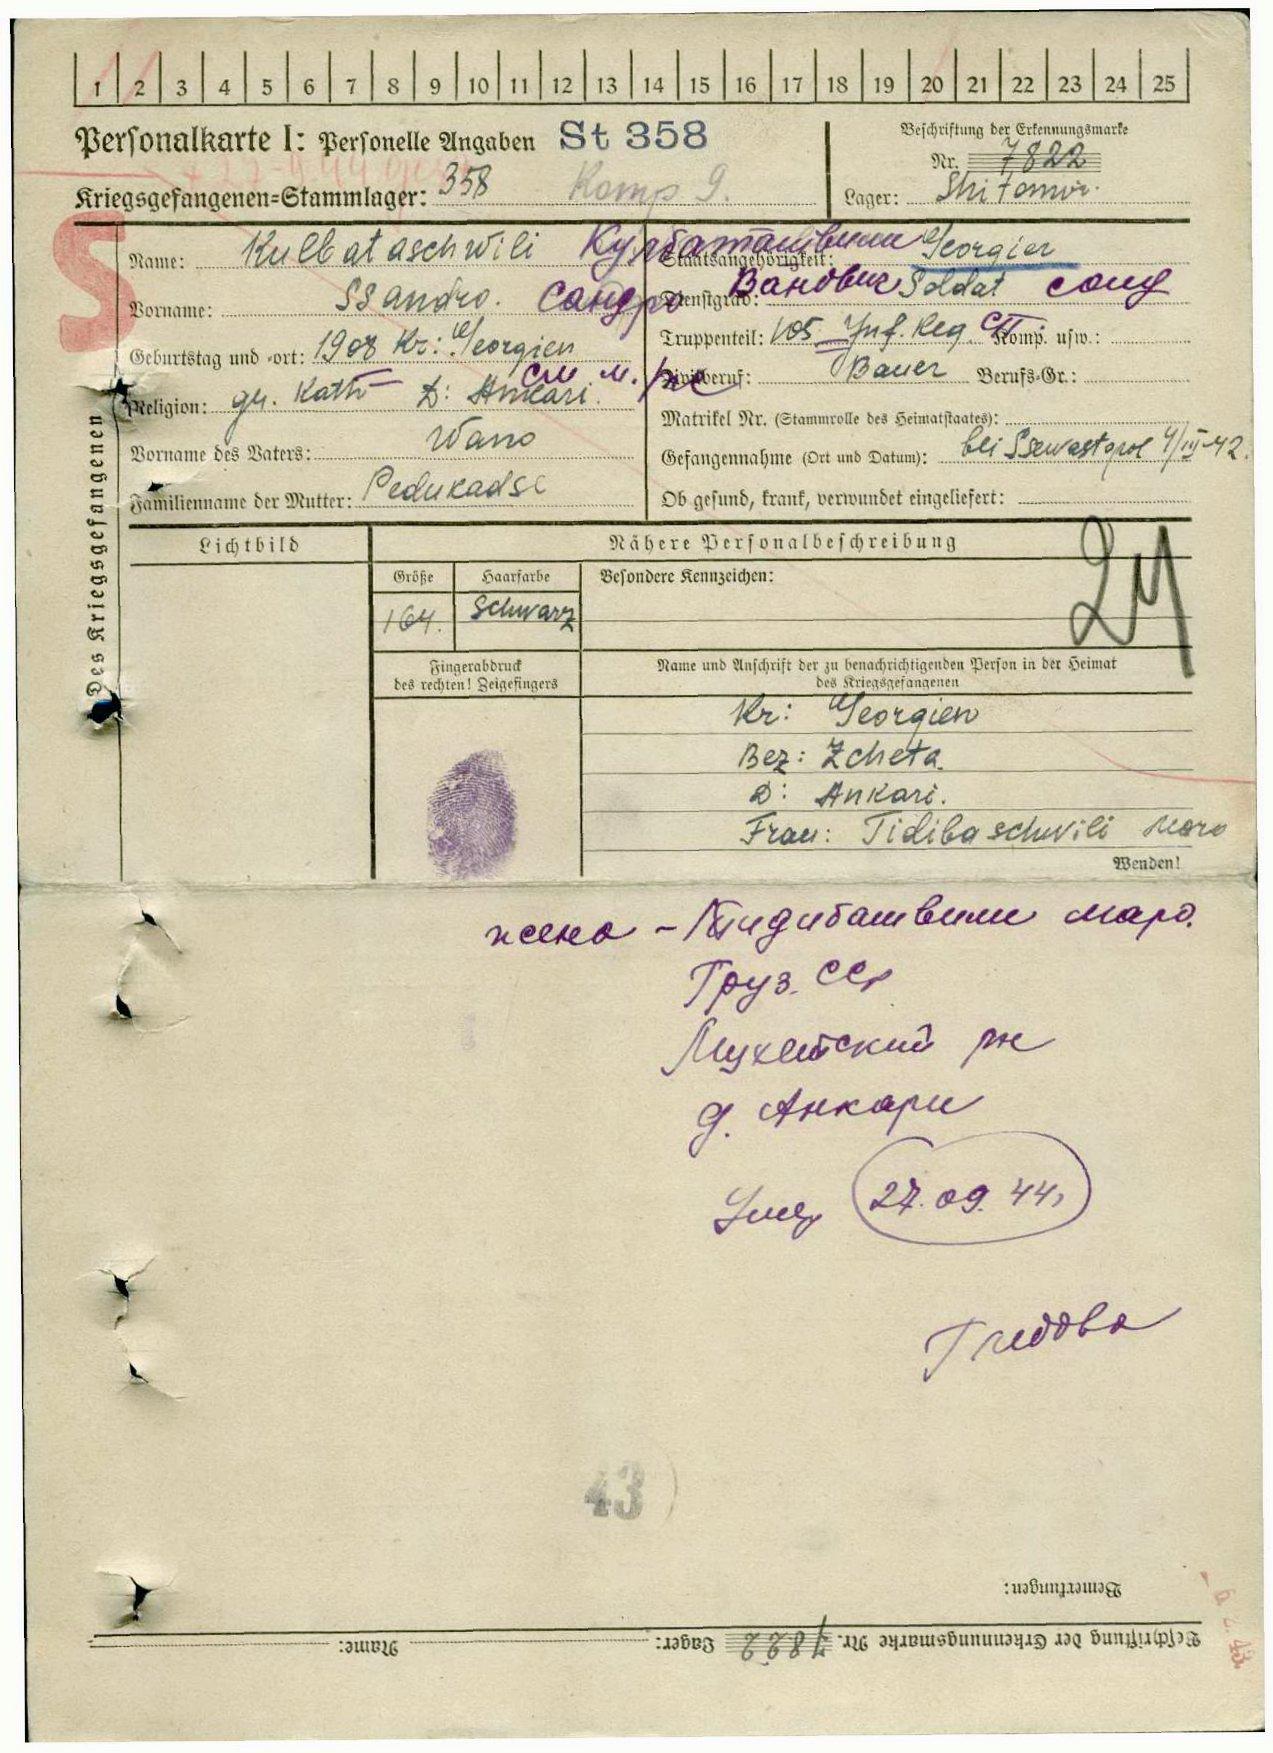 1 2 3 4 5 6 7 8 9 10 11 12 13 14 15 16 17 18 19 20 21 22 23 24 25
Personalkarte I: Personelle Angaben St 358
Beschriftung der Erkennungsmarke
Nr. 7822
Kriegsgefangenen-Stammlager: 358 Komp 9.
Lager: Shitomir.
S
Des Kriegsgefangenen
Name: Kulbataschwili Кулбаташвили
Staatsangehörigkeit: Georgier
Vorname: Ssandro. Сандро Вановиг
Dienstgrad: Soldat солд
Geburtstag und -ort: 1908 Kr: Georgien
Truppenteil: 105 Inf. Reg. сп Komp. usw.:
см м. рж
Religion: gr. Kath D: Ankari.
Zivilberuf: Bauer Berufs-Gr.:
Matrikel Nr. (Stammrolle des Heimatstaates):
Vorname des Vaters: Wano
Gefangennahme (Ort und Datum): bei Ssewastopol 4/III-42.
Familienname der Mutter: Pedukadse
Ob gesund, krank, verwundet eingeliefert:
Lichtbild
Nähere Personalbeschreibung
Größe Haarfarbe Besondere Kennzeichen:
164. Schwarz
Fingerabdruck
des rechten! Zeigefingers
Name und Anschrift der zu benachrichtigenden Person in der Heimat
des Kriegsgefangenen
Kr: Georgien
Bez: Zcheta.
D: Ankari.
Frau: Tidibaschwili Maro
Wenden!
жена - Тидибашвили Маро.
Груз. ССР
Мухетский рн
д. Анкари
Умер 27.09.44г
43
Bemerkungen:
Beschriftung der Erkennungsmarke Nr. 7822 Lager: Name: